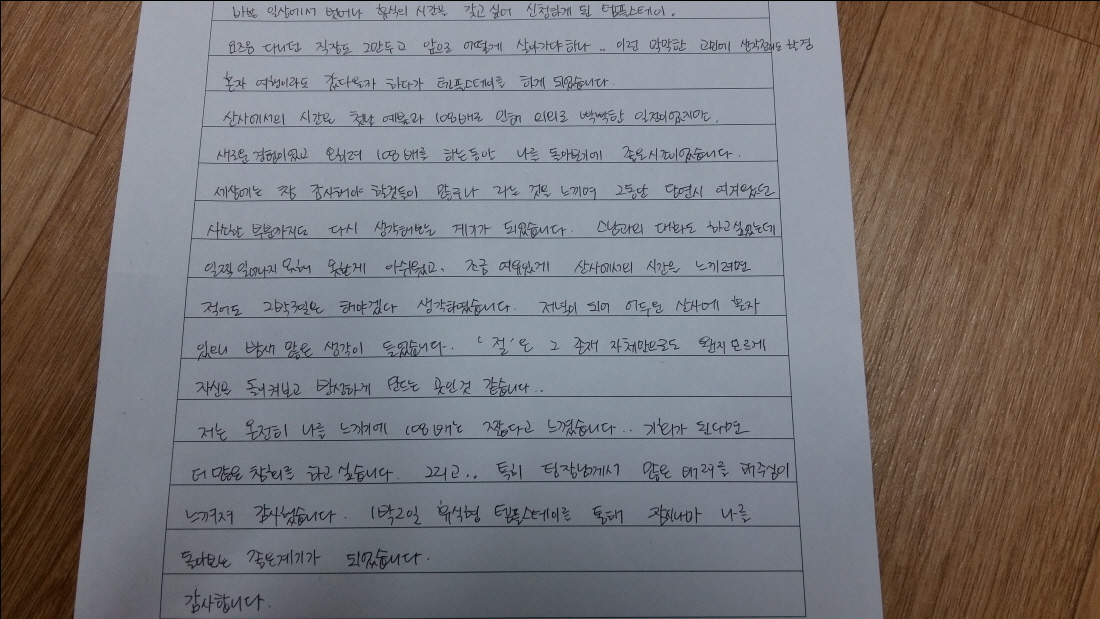 바쁜 일상에서 벗어나 휴식의 시간을 갖고 싶어 신청하게 된 템플스테이.
요즈음 다니던 직장도 그만두고 앞으로 어떻게 살아가야하나.. 이런 막막한 고민에 생각정리도 할겸
혼자 여행이라도 갔다올까 하다가 템플스테이를 하게 되었습니다.
산사에서의 시간은 첫날 예불과 108배로 인해 의외로 빡빡한 일정이었지만,
새로운 경험이었고 오히려 108배를 하는동안 나를 돌아보기에 좋은시간이었습니다.
세상에는 참 감사해야 할것들이 많구나 라는 것을 느끼며 그동안 당연시 여겨왔던
사소한 부분까지도 다시 생각해보는 계기가 되었습니다. 스님과의 대화도 하고싶었는데
일찍 일어나지 못해 못한게 아쉬웠고, 조금 여유있게 산사에서의 시간을 느끼려면
적어도 2박3일은 해야겠다 생각하였습니다. 저녁이 되어 어두운 산사에 혼자
있으니 밤새 많은 생각이 들었습니다. '절'은 그 존재 자체만으로도 왠지모르게
자신을 돌이켜보고 반성하게 만드는 곳인것 같습니다..
저는 온전히 나를 느끼기에 108배는 짧다고 느꼈습니다.. 기회가 된다면
더 많은 참회를 하고 싶습니다. 그리고.. 특히 팀장님께서 많은 배려를 해주심이
느껴져 감사했습니다. 1박2일 휴식형 템플스테이를 통해 잠시나마 나를
돌아보는 좋은계기가 되었습니다.
감사합니다.